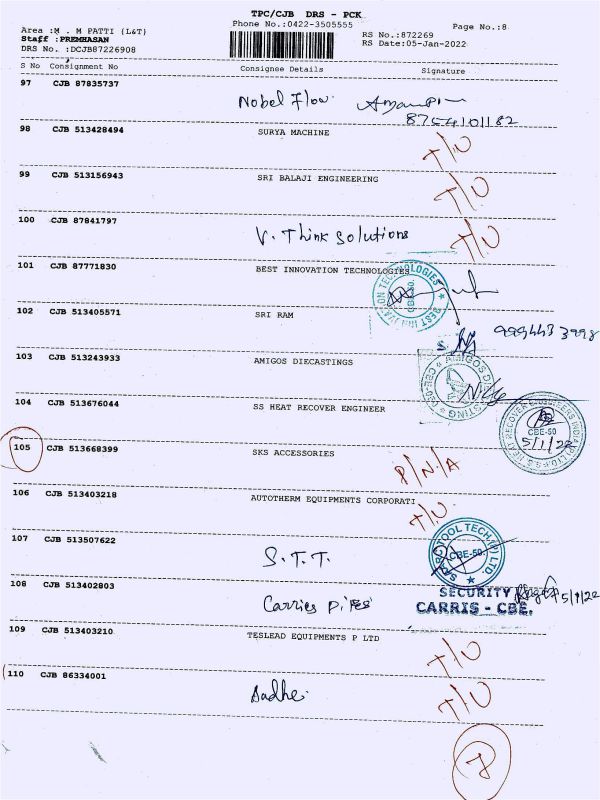 TPC/CJB DRS - PCK
Phone No.:0422-3505555
Page No.:8
Area :N . M PATTI (L&T)
Staff :PREMHASAN
DRS No. :DCJB87226908
RS No.:872269
RS Date:05-Jan-2022
S No Consignment No Consignee Details Signature
97 CJB 87835737 Nobel Flow
8754101182
98 CJB 513428494 SURYA MACHINE T/U
99 CJB 513156943 SRI BALAJI ENGINEERING T/U
100 CJB 87841797 V. Think Solutions T/U
101 CJB 87771830 BEST INNOVATION TECHNOLOGIES
CBE-50.
102 CJB 513405571 SRI RAM
9994433998
103 CJB 513243933 AMIGOS DIECASTINGS
104 CJB 513676044 SS HEAT RECOVER ENGINEER
CBE-50
5/1/22
105 CJB 513668399 SKS ACCESSORIES P/N/A
106 CJB 513403218 AUTOTHERM EQUIPMENTS CORPORATI T/U
107 CJB 513507622 S.T.T.
CBE-50.
108 CJB 513402803 Carries Pipes
SECURITY 5/1/22
CARRIS - CBE.
109 CJB 513403210 TESLEAD EQUIPMENTS P LTD T/U
110 CJB 86334001 T/U